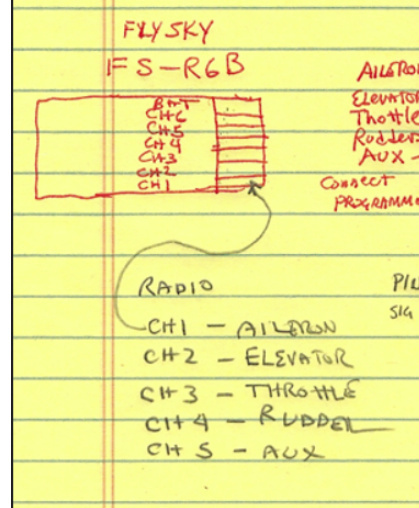 FLYSKY
FS-R6B
BAT
CH6
CH5
CH4
CH3
CH2
CH1
AILERON
ELEVATOR
Thottle
Rudder
AUX -
Connect
PROGRAMM
RADIO
CH1 - AILERON
CH2 - ELEVATOR
CH3 - THROTTLE
CH4 - RUDDER
CH5 - AUX
SIG